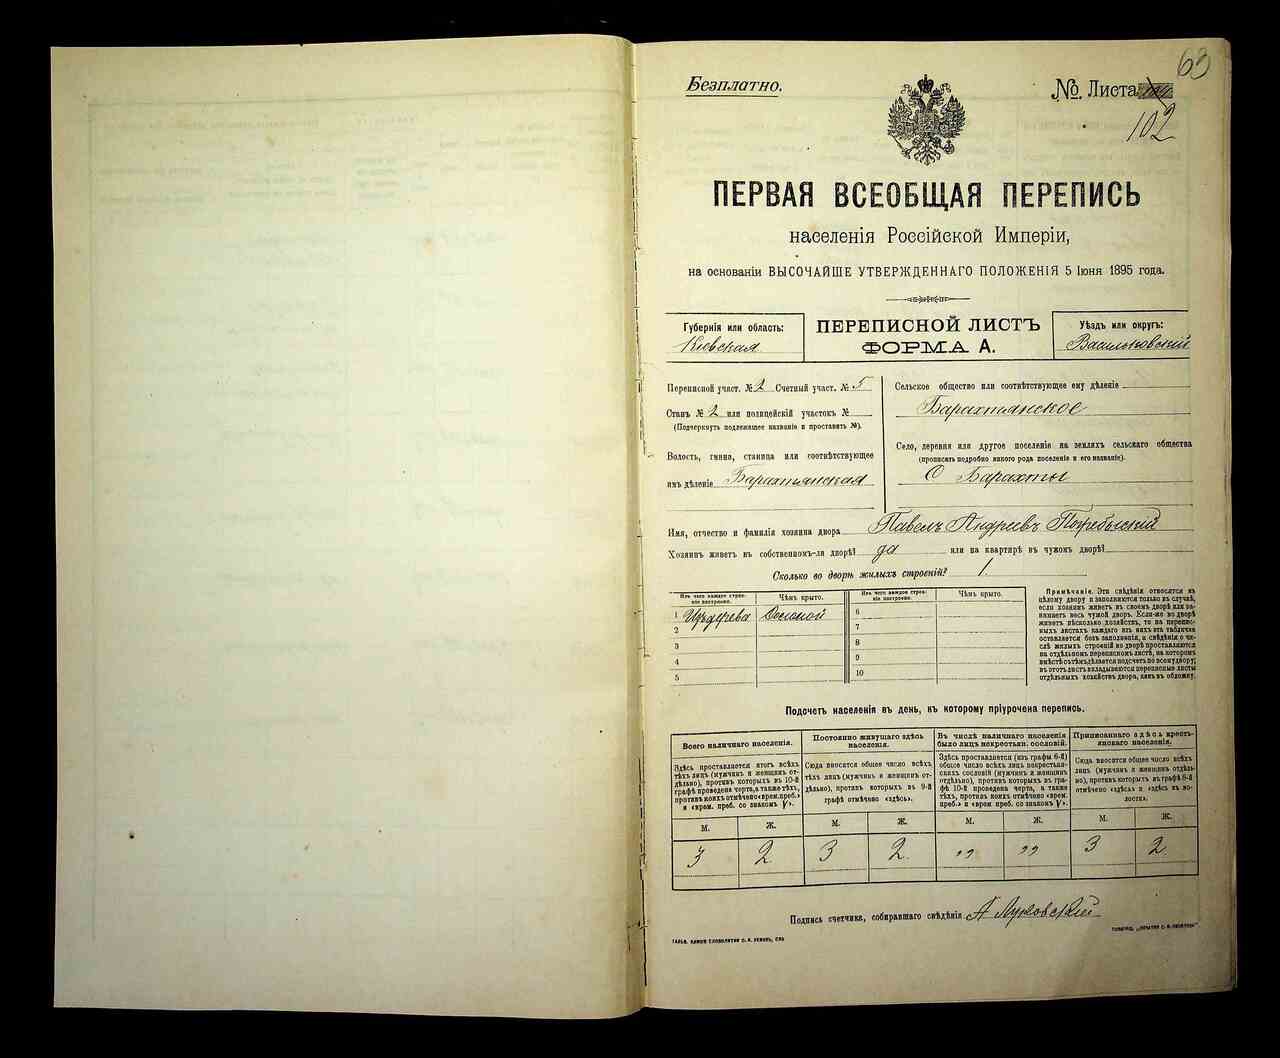 63
Безплатно.
№ Листа
102
ПЕРВАЯ ВСЕОБЩАЯ ПЕРЕПИСЬ
населенія Россійской Имперіи,
на основаніи ВЫСОЧАЙШЕ УТВЕРЖДЕННАГО ПОЛОЖЕНІЯ 5 Іюня 1895 года.
Губернія или область:
Кіевская
ПЕРЕПИСНОЙ ЛИСТЪ
ФОРМА А.
Уѣздъ или округъ:
Васильковскій
Переписной участ. № 2 Счетный участ. № 5
Станъ № 2 или полицейскій участокъ №
(Подчеркнуть подлежащее названіе и проставить №).
Волость, гмина, станица или соотвѣтствующее
имъ дѣленіе Барахтянская
Сельское общество или соотвѣтствующее ему дѣленіе
Барахтянское
Село, деревня или другое поселеніе на земляхъ сельскаго общества
(прописать подробно какого рода поселеніе и его названіе).
С Барахты
Имя, отчество и фамилія хозяина двора Павелъ Андреевъ Погребыскій
Хозяинъ живетъ въ собственномъ-ли дворѣ? да или на квартирѣ въ чужомъ дворѣ?
Сколько во дворѣ жилыхъ строеній? 1.
Изъ чего каждое строеніе построено.
Чѣмъ крыто.
Изъ чего каждое строеніе построено.
Чѣмъ крыто.
1 Изъ дерева Соломой
2
3
4
5
6
7
8
9
10
Примѣчаніе. Эти свѣдѣнія относятся къ
цѣлому двору и заполняются только въ случаѣ,
если хозяинъ живетъ въ своемъ дворѣ или за-
нимаетъ весь чужой дворъ. Если-же во дворѣ
живетъ нѣсколько хозяйствъ, то на перепис-
ныхъ листахъ каждаго изъ нихъ эта табличка
оставляется безъ заполненія, и свѣдѣнія о чи-
слѣ жилыхъ строеній во дворѣ проставляются
на отдѣльномъ переписномъ листѣ, на которомъ
вмѣстѣ съ тѣмъ дѣлается подсчетъ по всему двору;
въ этотъ листъ вкладываются переписные листы
отдѣльныхъ хозяйствъ двора, какъ въ обложку.
Подсчетъ населенія въ день, къ которому пріурочена перепись.
Всего наличнаго населенія.
Постоянно живущаго здѣсь
населенія.
Въ числѣ наличнаго населенія
было лицъ некрестьян. сословій.
Приписаннаго здѣсь кресть-
янскаго населенія.
Здѣсь проставляется итогъ всѣхъ
тѣхъ лицъ (мужчинъ и женщинъ от-
дѣльно), противъ которыхъ въ 10-й
графѣ проведена черта, а также тѣхъ,
противъ коихъ отмѣчено «врем. преб.»
и «врем. преб. со знакомъ V».
Сюда вносится общее число всѣхъ
тѣхъ лицъ (мужчинъ и женщинъ от-
дѣльно), противъ которыхъ въ 9-й
графѣ отмѣчено «здѣсь».
Здѣсь проставляется (изъ графы 6-й)
общее число всѣхъ лицъ некрестьян-
скихъ сословій (мужчинъ и женщинъ
отдѣльно), противъ которыхъ въ гра-
фѣ 10-й проведена черта, а также
тѣхъ, противъ коихъ отмѣчено «врем.
преб.» и «врем. преб. со знакомъ V».
Сюда вносится общее число всѣхъ
лицъ (мужчинъ и женщинъ отдѣль-
но), противъ которыхъ въ графѣ 8-й
отмѣчено «здѣсь» и «здѣсь въ во-
лости».
М. Ж. М. Ж. М. Ж. М. Ж.
3 2 3 2 „ „ 3 2
Подпись счетчика, собиравшаго свѣдѣнія А Луковскій